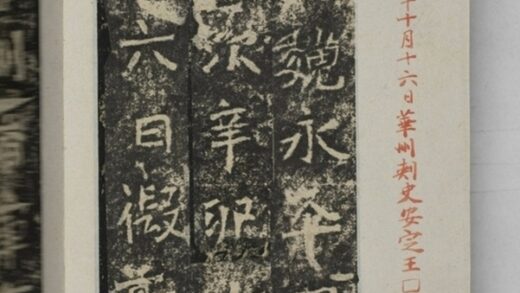 十月十六日華州刺史安定王□
魏永平
次辛卯
六日徦